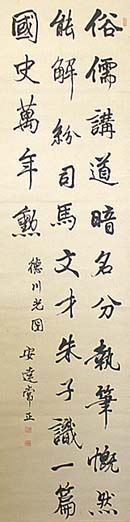 俗儒講道暗名分執筆慨然
能解紛司馬文才朱子識一篇
國史萬年勲
德川光圀
安達常正